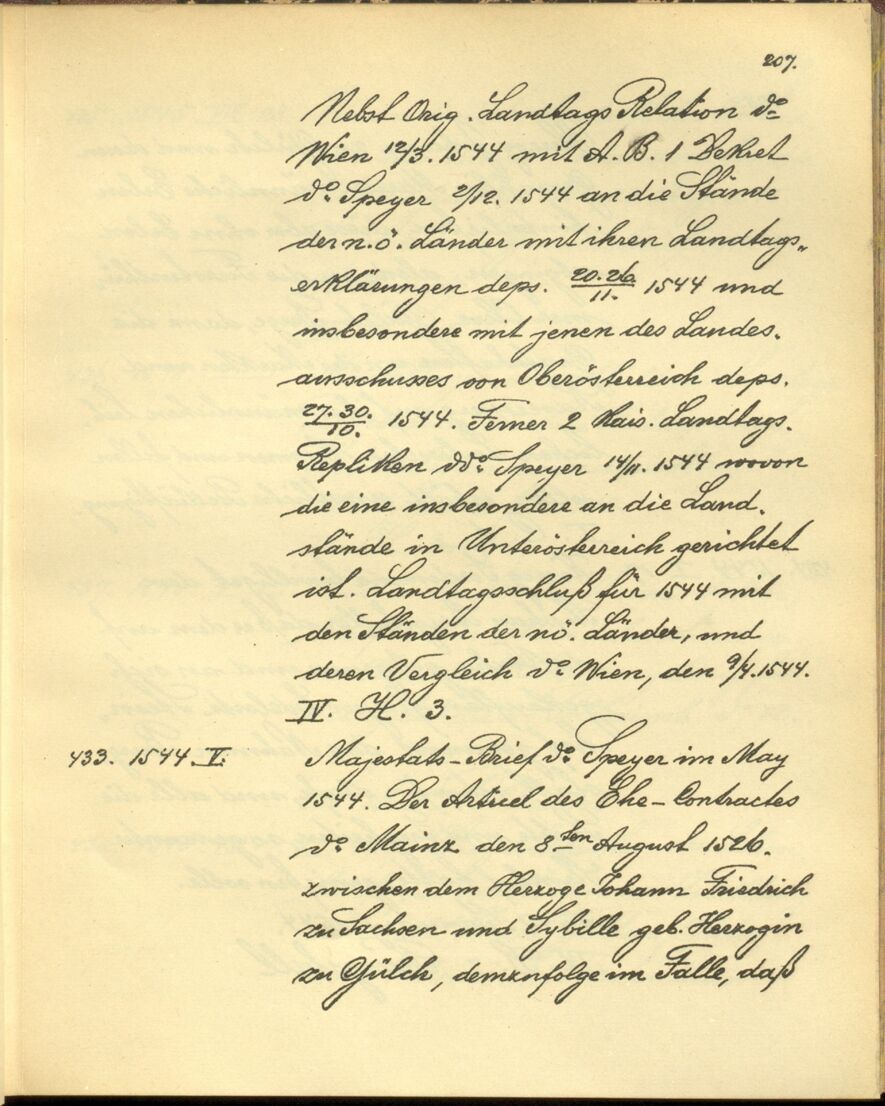 207.
Nebst Orig. Landtags Relation do
Wien 12/3. 1544 mit A. B. 1 Dekret
do. Speyer 2/12. 1544 an die Stände
der n. ö. Länder mit ihren Landtags„
erklärungen deps. 20. 26/11. 1544 und
insbesondere mit jenen des Landes.
ausschusses von Oberösterreich deps.
27. 30./10. 1544. Ferner 2 Kais. Landtags.
Repliken ddo. Speyer 14/11. 1544 wovon
die eine insbesondere an die Land.
stände in Unterösterreich gerichtet
ist. Landtagsschluß für 1544 mit
den Ständen der nö. Länder, und
deren Vergleich do. Wien, den 9/4. 1544.
IV. H. 3.
433. 1544. V. Majestats-Brief do. Speyer im May
1544. Der Articel des Ehe-Contractes
do. Mainz den 8ten August 1526.
zwischen dem Herzoge Johann Friedrich
zu Sachsen und Sybille geb. Herzogin
zu Gülch, demzufolge im Falle, daß